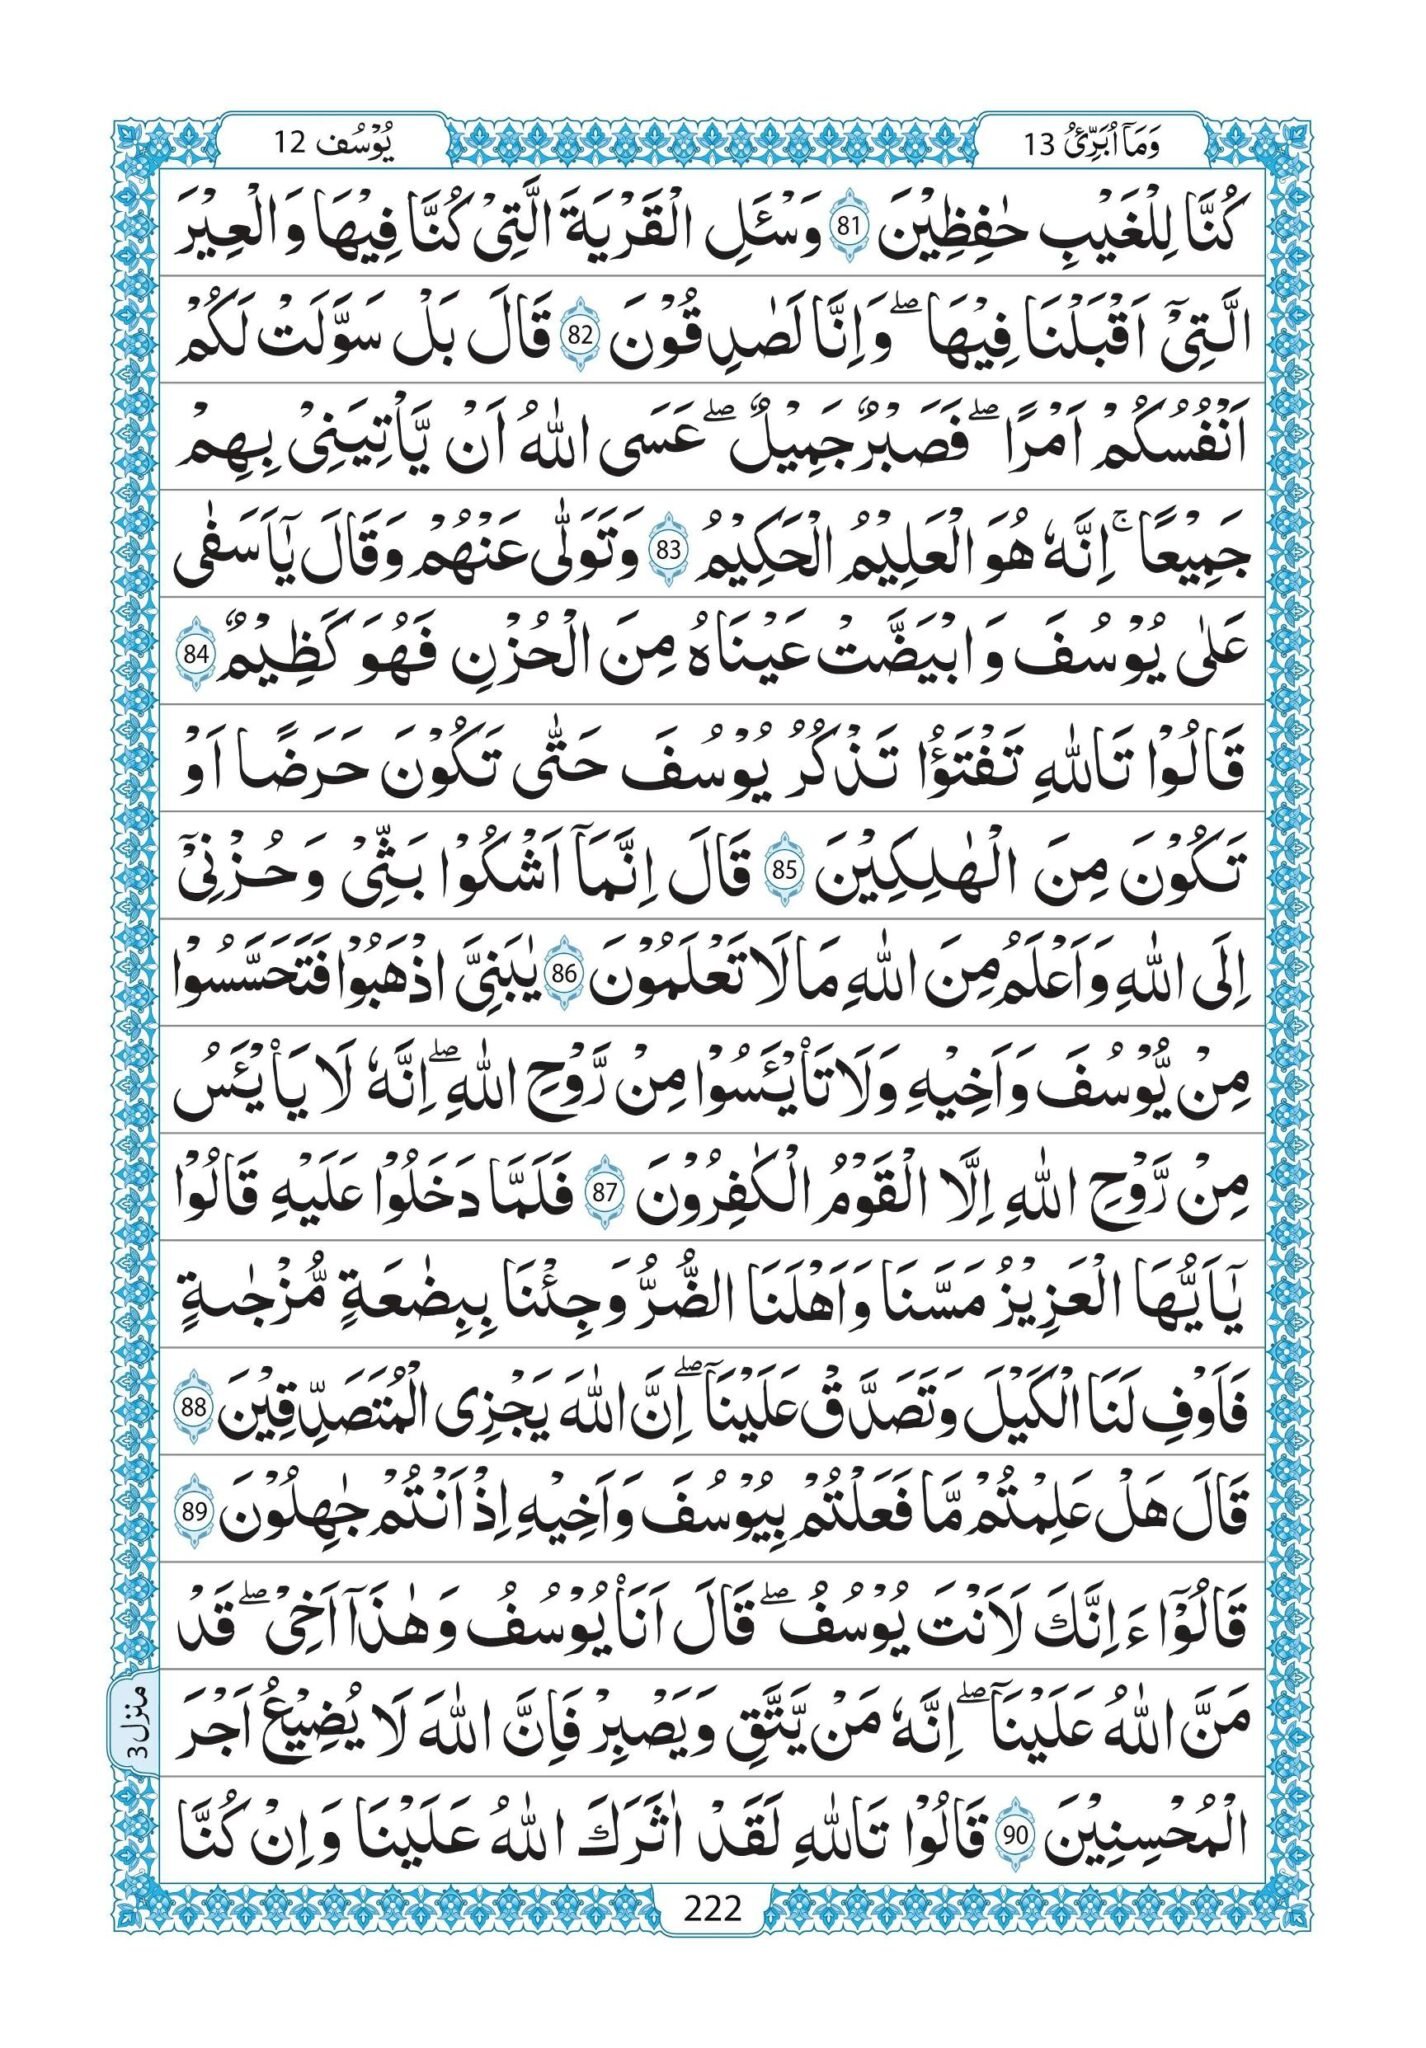 وَمَاۤ اُبَرِّئُ 13
یُوْسُف 12
كُنَّا لِلْغَیْبِ حٰفِظِیْنَ 81 وَسْـَٔلِ الْقَرْیَةَ الَّتِیْ كُنَّا فِیْهَا وَالْعِیْرَ
الَّتِیْۤ اَقْبَلْنَا فِیْهَا ۖ وَاِنَّا لَصٰدِقُوْنَ 82 قَالَ بَلْ سَوَّلَتْ لَكُمْ
اَنْفُسُكُمْ اَمْرًا ۖ فَصَبْرٌ جَمِیْلٌ ۖ عَسَی اللّٰهُ اَنْ یَّاْتِیَنِیْ بِهِمْ
جَمِیْعًا ۚ اِنَّهٗ هُوَ الْعَلِیْمُ الْحَكِیْمُ 83 وَتَوَلّٰی عَنْهُمْ وَقَالَ یٰۤاَسَفٰی
عَلٰی یُوْسُفَ وَابْیَضَّتْ عَیْنَاهُ مِنَ الْحُزْنِ فَهُوَ كَظِیْمٌ 84
قَالُوْا تَاللّٰهِ تَفْتَؤُا تَذْكُرُ یُوْسُفَ حَتّٰی تَكُوْنَ حَرَضًا اَوْ
تَكُوْنَ مِنَ الْهٰلِكِیْنَ 85 قَالَ اِنَّمَاۤ اَشْكُوْا بَثِّیْ وَحُزْنِیْۤ
اِلَی اللّٰهِ وَاَعْلَمُ مِنَ اللّٰهِ مَا لَا تَعْلَمُوْنَ 86 یٰبَنِیَّ اذْهَبُوْا فَتَحَسَّسُوْا
مِنْ یُّوْسُفَ وَاَخِیْهِ وَلَا تَاْیْـَٔسُوْا مِنْ رَّوْحِ اللّٰهِ ۖ اِنَّهٗ لَا یَاْیْـَٔسُ
مِنْ رَّوْحِ اللّٰهِ اِلَّا الْقَوْمُ الْكٰفِرُوْنَ 87 فَلَمَّا دَخَلُوْا عَلَیْهِ قَالُوْا
یٰۤاَیُّهَا الْعَزِیْزُ مَسَّنَا وَاَهْلَنَا الضُّرُّ وَجِئْنَا بِبِضٰعَةٍ مُّزْجٰىةٍ
فَاَوْفِ لَنَا الْكَیْلَ وَتَصَدَّقْ عَلَیْنَاۤ ۖ اِنَّ اللّٰهَ یَجْزِی الْمُتَصَدِّقِیْنَ 88
قَالَ هَلْ عَلِمْتُمْ مَّا فَعَلْتُمْ بِیُوْسُفَ وَاَخِیْهِ اِذْ اَنْتُمْ جٰهِلُوْنَ 89
قَالُوْۤا ءَاِنَّكَ لَاَنْتَ یُوْسُفُ ۖ قَالَ اَنَا یُوْسُفُ وَهٰذَاۤ اَخِیْ ۖ قَدْ
مَنَّ اللّٰهُ عَلَیْنَاۤ ۖ اِنَّهٗ مَنْ یَّتَّقِ وَیَصْبِرْ فَاِنَّ اللّٰهَ لَا یُضِیْعُ اَجْرَ
الْمُحْسِنِیْنَ 90 قَالُوْا تَاللّٰهِ لَقَدْ اٰثَرَكَ اللّٰهُ عَلَیْنَا وَاِنْ كُنَّا
منزل 3
222